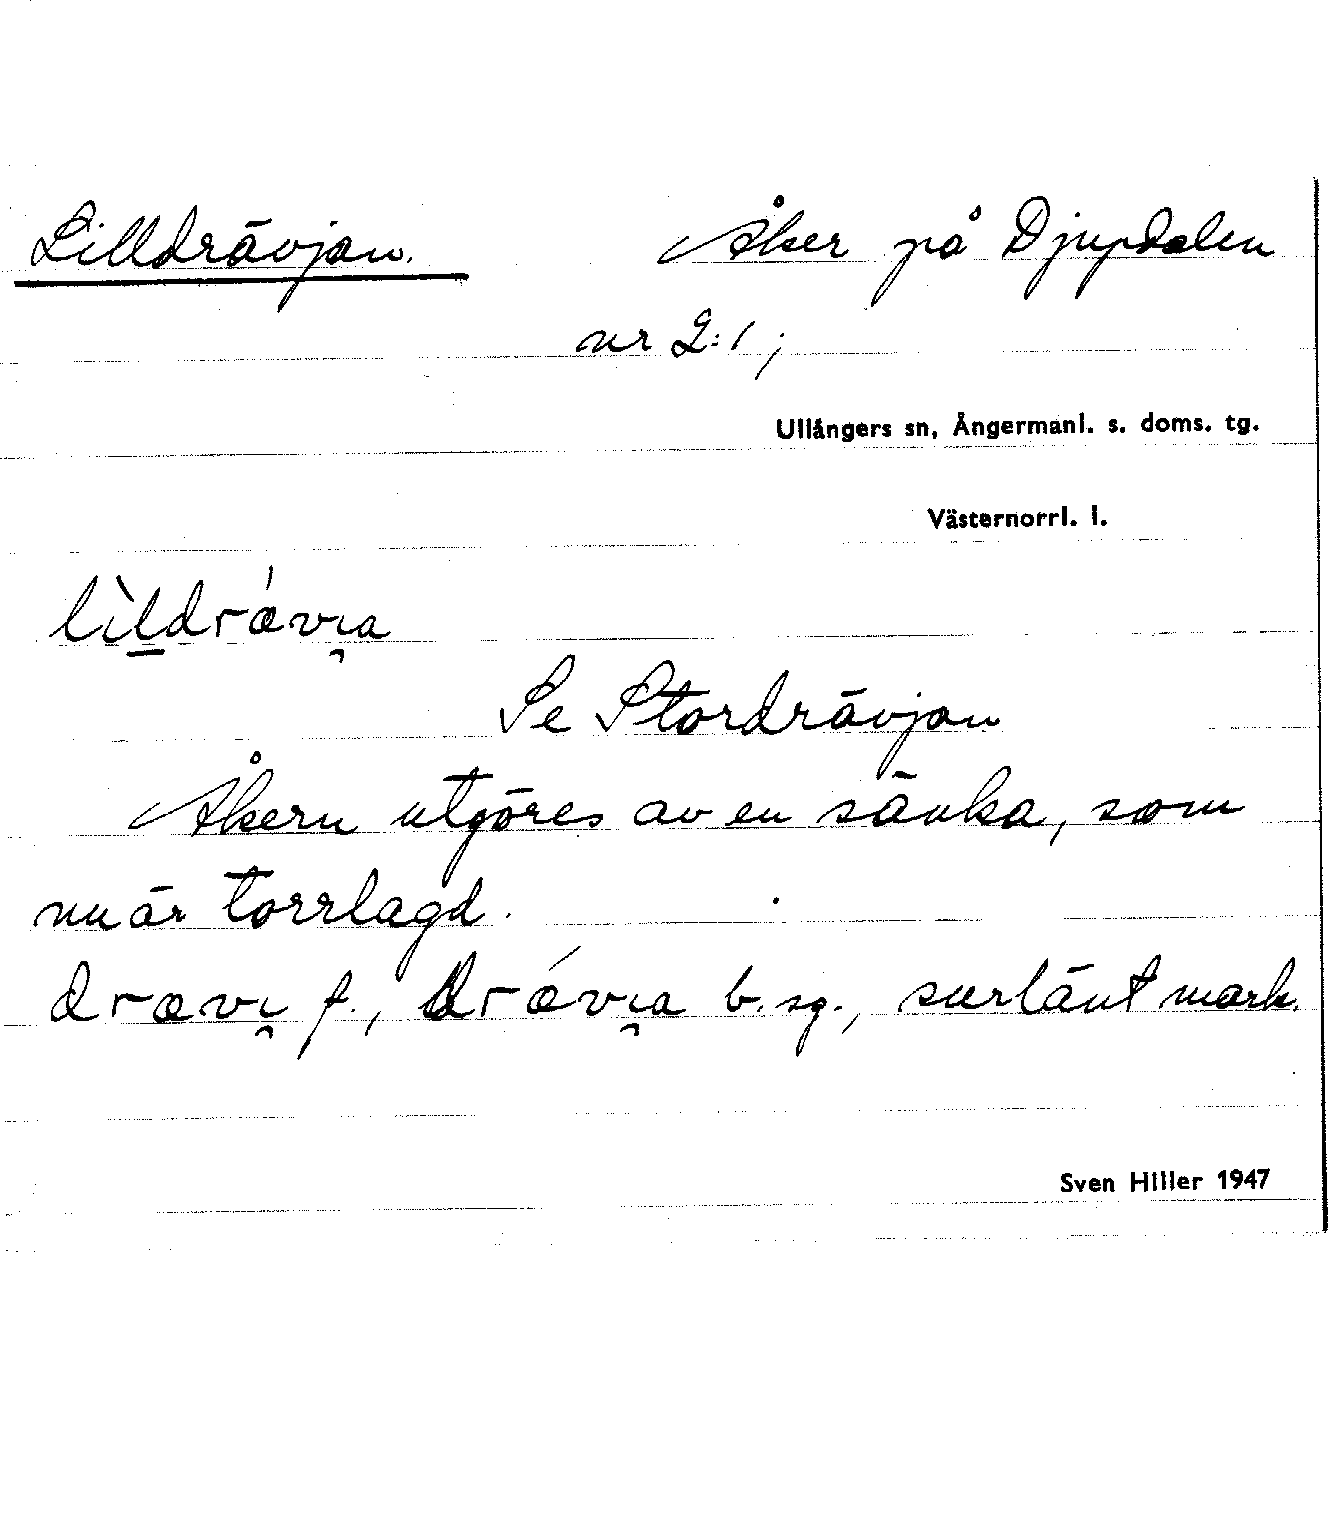 Lilldrävjan. Åker på Djupdalen
nr 2:1;
Ullångers sn, Ångermanl. s. doms. tg.
Västernorrl. l.
lìldrǽvi̯a
Se Stordrävjan
Åkern utgöres av en sänka, som
nu är torrlagd.
drævi̯ f., drǽvi̯a b. sg., surlänt mark.
Sven Hiller 1947